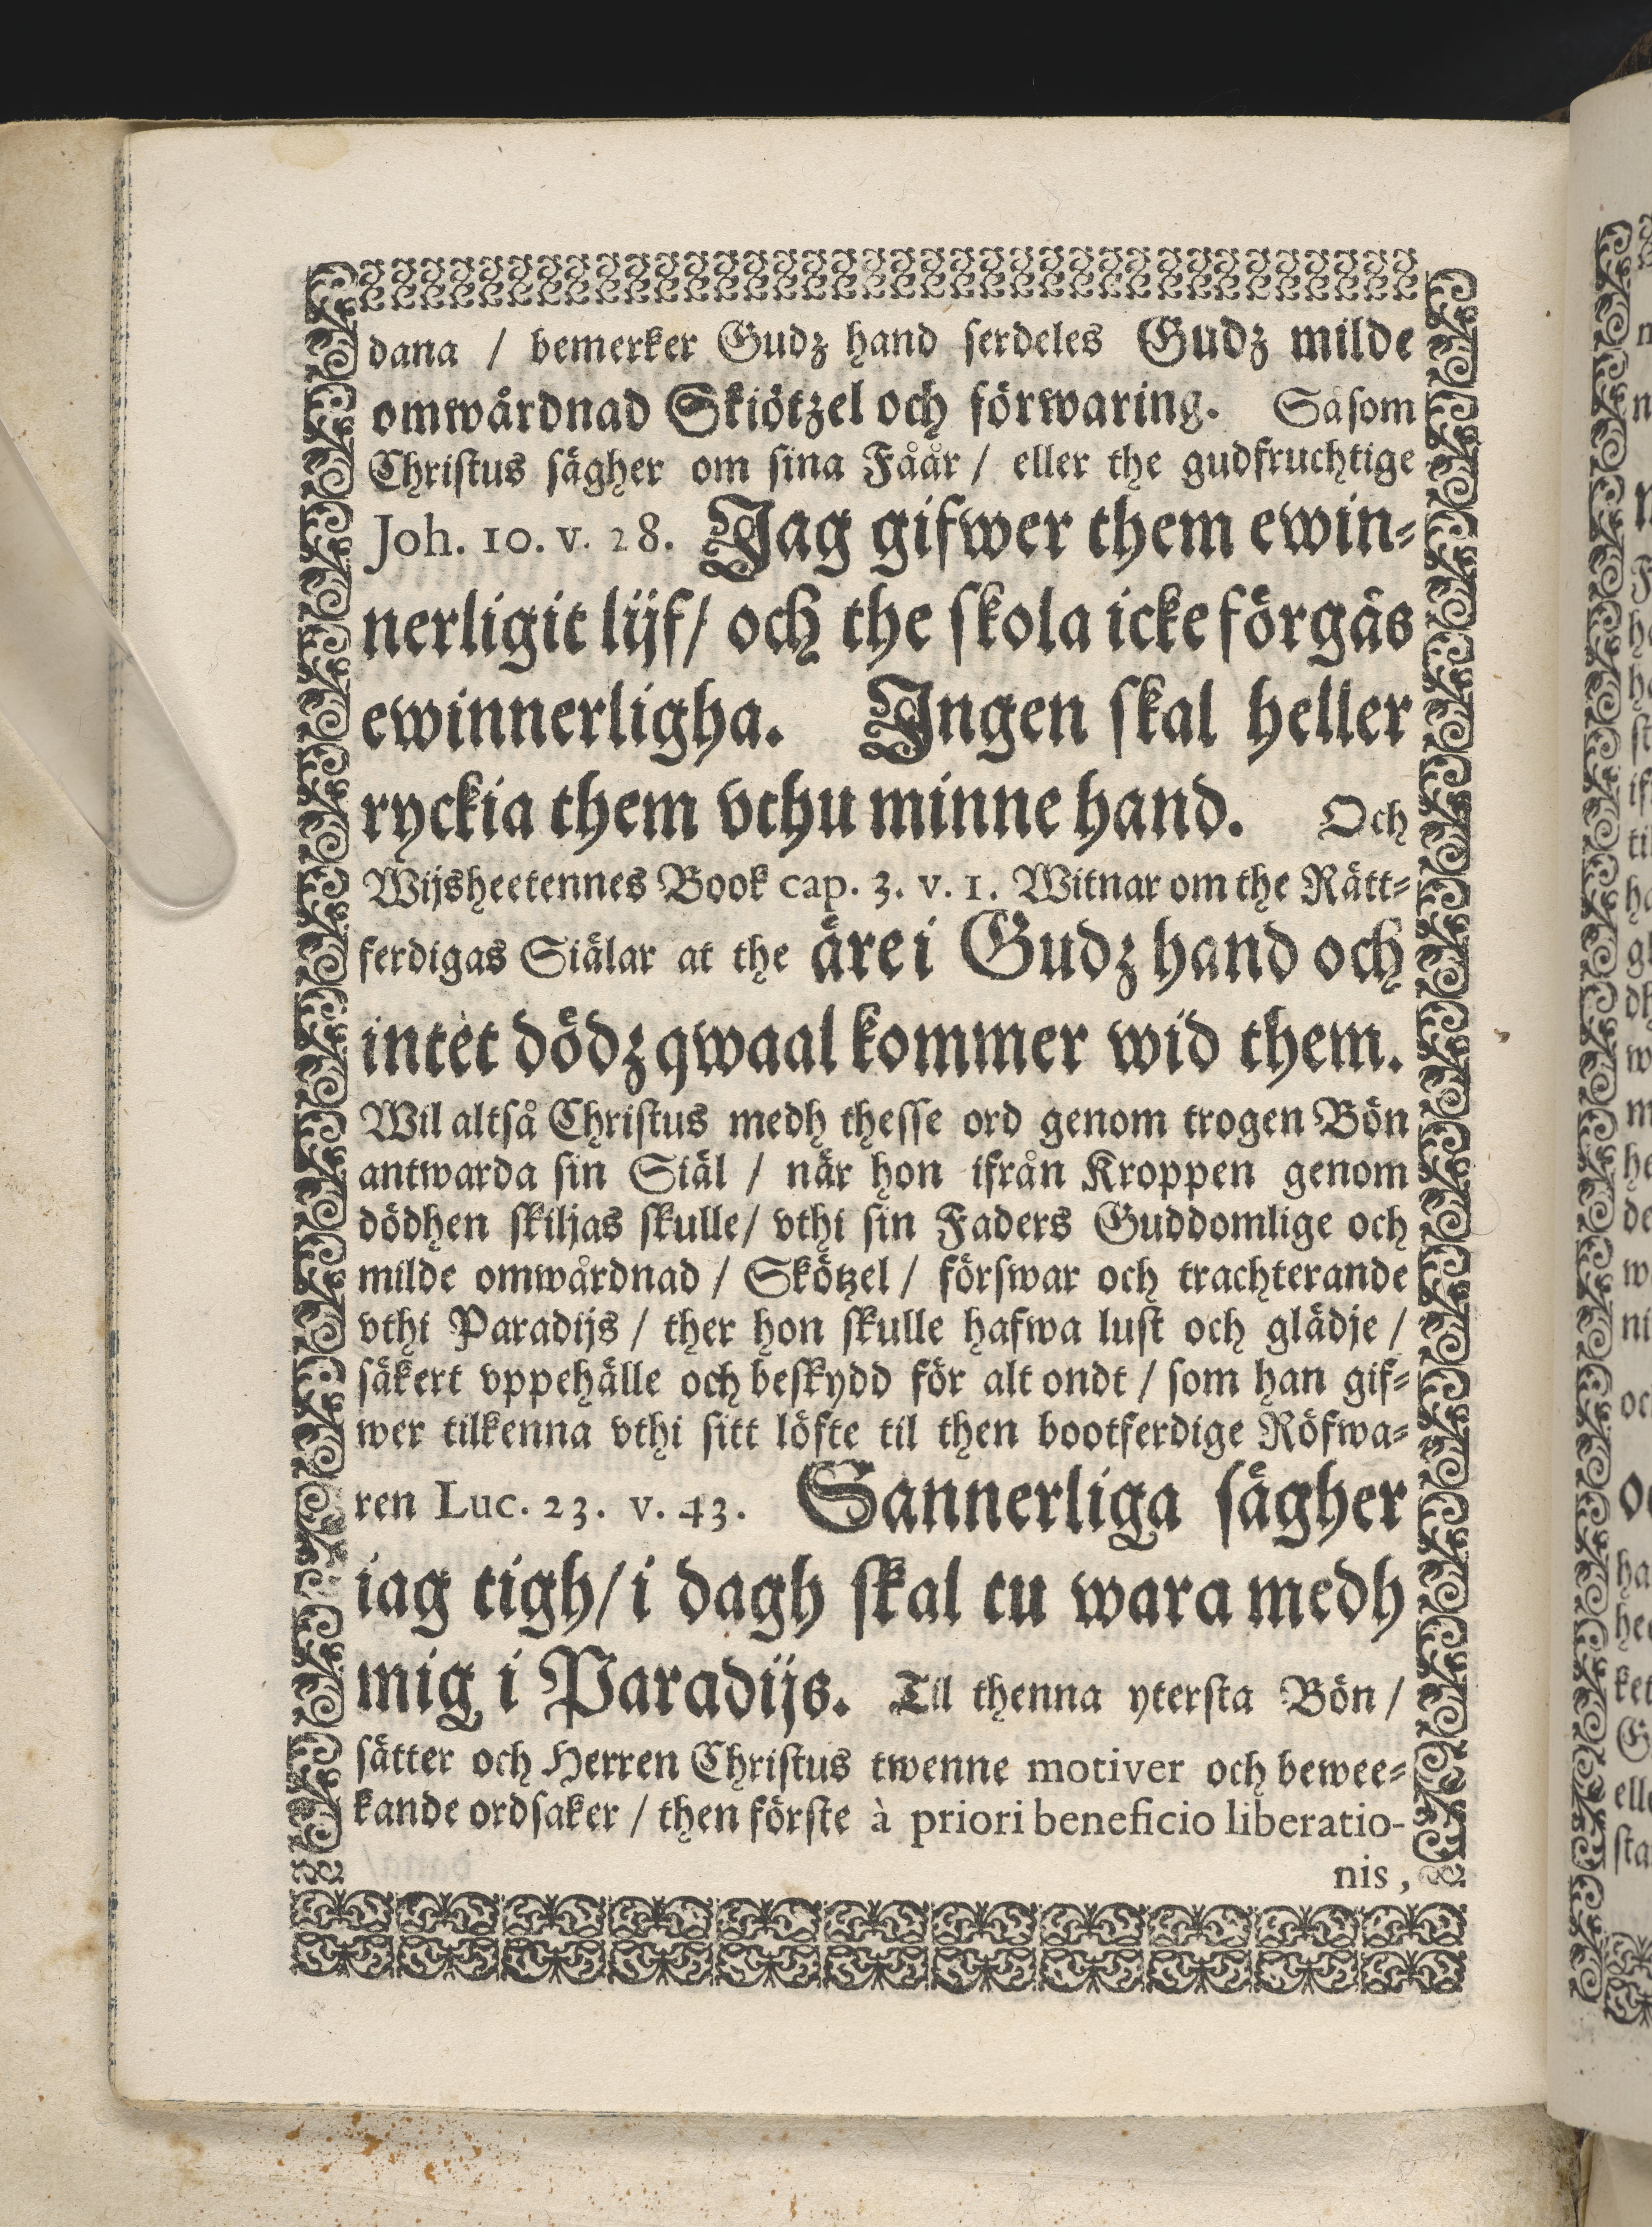 dana / bemerker Gudz hand serdeles Gudz milde
omwårdnad Skiötzel och förwaring. Såsom
Christus sägher om sina Fåår / eller the gudfruchtige
Joh. 10. v. 28. Jag gifwer them ewin-
nerligit lijf / och the skola icke förgås
ewinnerligha. Ingen skal heller
ryckia them vthu minne hand. Och
Wijsheetennes Book cap. 3. v. 1. Witnar om the Rätt-
ferdigas Siälar at the äre i Gudz hand och
intet dödz qwaal kommer wid them.
Wil altså Christus medh thesse ord genom trogen Bön
antwarda sin Siäl / när hon ifrån Kroppen genom
dödhen skiljas skulle / vthi sin Faders Guddomlige och
milde omwårdnad / Skötzel / förswar och trachterande
vthi Paradijs / ther hon skulle hafwa lust och glädje /
säkert vppehälle och beskydd för alt ondt / som han gif-
wer tilkenna vthi sitt löfte til then bootferdige Röfwa-
ren Luc. 23. v. 43. Sannerliga sägher
iag tigh / i dagh skal tu wara medh
mig i Paradijs. Til thenna ytersta Bön /
sätter och Herren Christus twenne motiver och bewee-
kande ordsaker / then förste à priori beneficio liberatio-
nis,